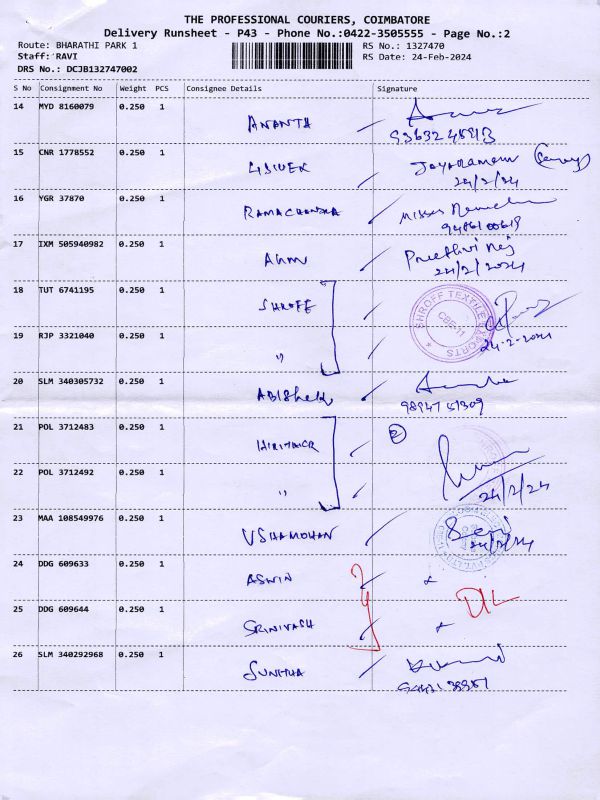 THE PROFESSIONAL COURIERS, COIMBATORE
Delivery Runsheet - P43 - Phone No.:0422-3505555 - Page No.:2
Route: BHARATHI PARK 1 RS No.: 1327470
Staff: RAVI RS Date: 24-Feb-2024
DRS No.: DCJB132747002
S No Consignment No Weight PCS Consignee Details Signature
14 MYD 8160079 0.250 1 ANANTA
15 CNR 1778552 0.250 1 Jayaraman
24/2/24
16 YGR 37870 0.250 1 RAMACHANDRA
17 IXM 505940982 0.250 1 Prethvi Raj
24/2/2024
18 TUT 6741195 0.250 1 SHROFF
SHROFF TEXTILE EXPORTS
CBE-11
19 RJP 3321040 0.250 1 "
24-2-2024
20 SLM 340305732 0.250 1 ABIShek
21 POL 3712483 0.250 1 2
22 POL 3712492 0.250 1 "
24/2/24
23 MAA 108549976 0.250 1
24/2/24
24 DDG 609633 0.250 1 ASWIN
25 DDG 609644 0.250 1 DL
26 SLM 340292968 0.250 1 SUNITHA